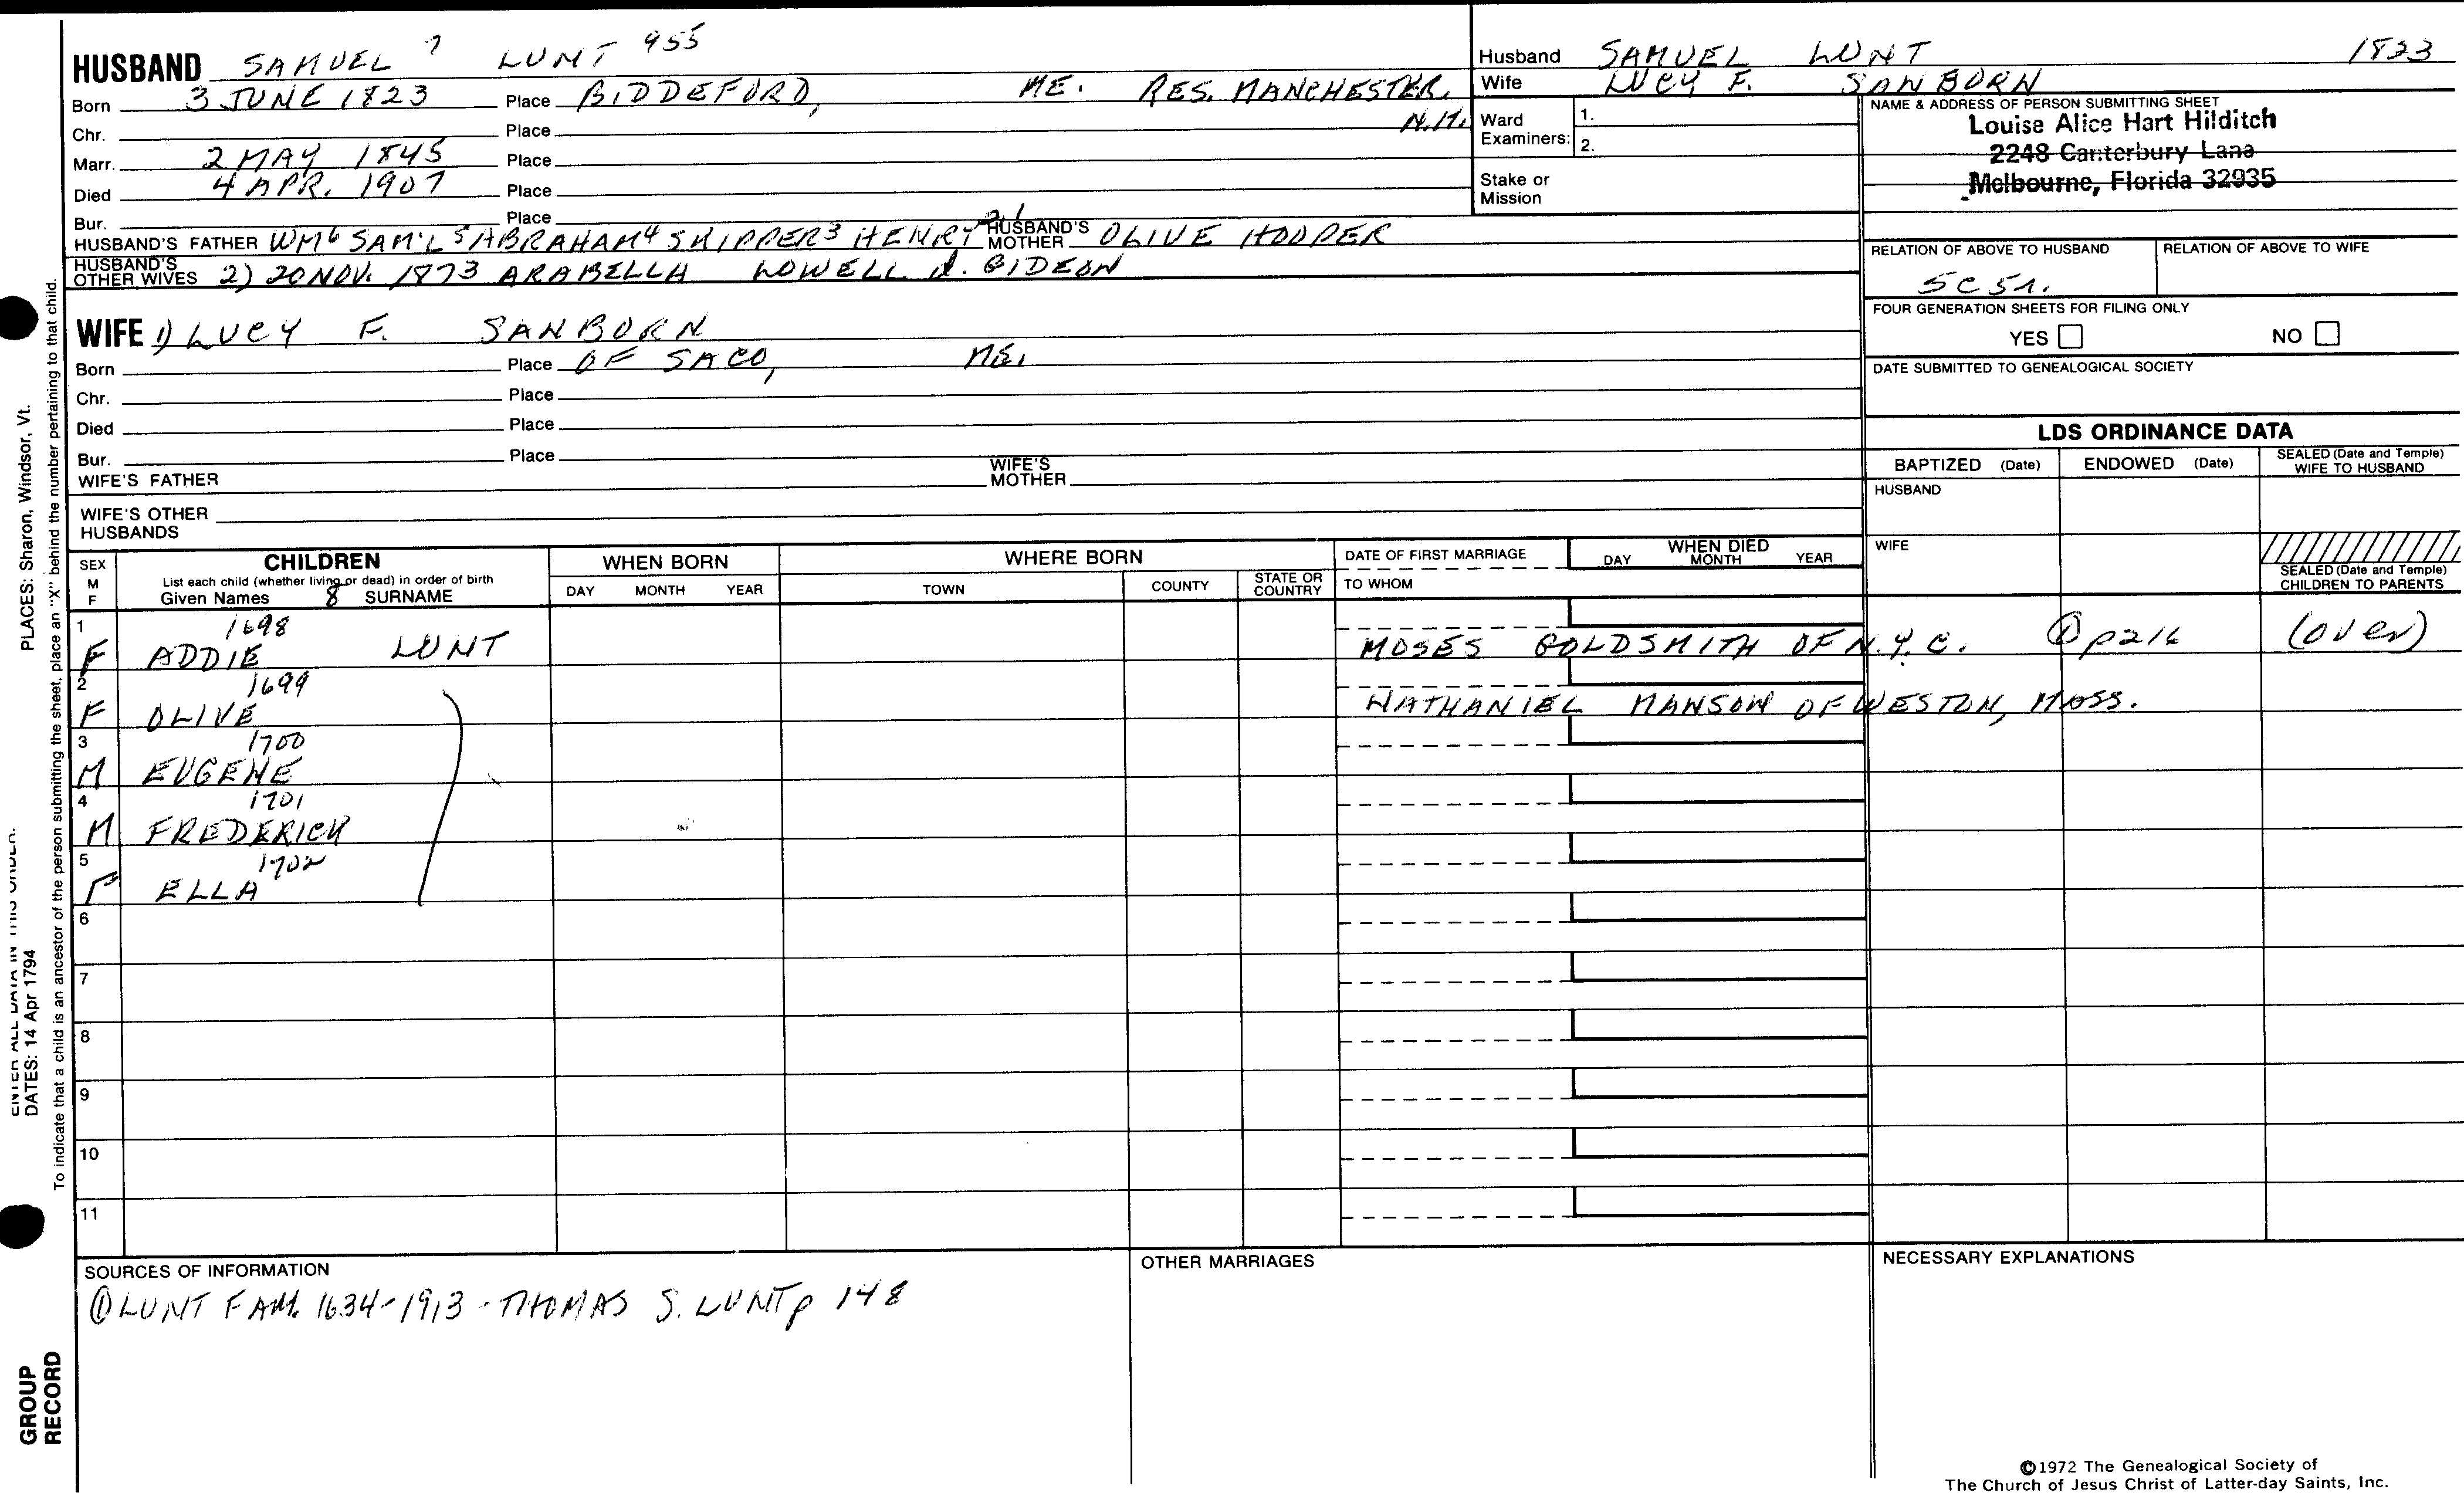 HUSBAND SAMUEL 7 LUNT 955
Born 3 JUNE 1823 Place BIDDEFORD, ME. RES. MANCHESTER, N.H.
Chr. Place
Marr. 2 MAY 1845 Place
Died 4 APR. 1907 Place
Bur. Place
HUSBAND'S FATHER WM6 SAM'L5 ABRAHAM4 SKIPPER3 HENRY 21 HUSBAND'S MOTHER OLIVE HOOPER
HUSBAND'S OTHER WIVES 2) 20 NOV. 1873 ARABELLA LOWELL d. GIDEON
WIFE 1) LUCY F. SANBORN
Born Place OF SACO, ME.
Chr. Place
Died Place
Bur. Place
WIFE'S FATHER WIFE'S MOTHER
WIFE'S OTHER HUSBANDS
Husband SAMUEL LUNT 1823
Wife LUCY F. SANBORN
Ward Examiners: 1.
2.
Stake or Mission
NAME & ADDRESS OF PERSON SUBMITTING SHEET
Louise Alice Hart Hilditch
2248 Canterbury Lane
Melbourne, Florida 32935
RELATION OF ABOVE TO HUSBAND RELATION OF ABOVE TO WIFE
5C5r.
FOUR GENERATION SHEETS FOR FILING ONLY
YES NO
DATE SUBMITTED TO GENEALOGICAL SOCIETY
LDS ORDINANCE DATA
BAPTIZED (Date) ENDOWED (Date) SEALED (Date and Temple) WIFE TO HUSBAND
HUSBAND
WIFE
SEALED (Date and Temple) CHILDREN TO PARENTS
SEX M F
CHILDREN
List each child (whether living or dead) in order of birth
Given Names 8 SURNAME
WHEN BORN
DAY MONTH YEAR
WHERE BORN
TOWN COUNTY STATE OR COUNTRY
DATE OF FIRST MARRIAGE
TO WHOM
WHEN DIED
DAY MONTH YEAR
1 1698
F ADDIE LUNT MOSES GOLDSMITH OF N.Y.C. ① p216 (over)
2 1699
F OLIVE NATHANIEL MANSON OF WESTON, MASS.
3 1700
M EUGENE
4 1701
M FREDERICK
5 1702
F ELLA
6
7
8
9
10
11
SOURCES OF INFORMATION
① LUNT FAM. 1634-1913 - THOMAS S. LUNT p 148
OTHER MARRIAGES
NECESSARY EXPLANATIONS
©1972 The Genealogical Society of
The Church of Jesus Christ of Latter-day Saints, Inc.
PLACES: Sharon, Windsor, Vt.
ENTER ALL DATA IN THIS ORDER:
DATES: 14 Apr 1794
To indicate that a child is an ancestor of the person submitting the sheet, place an "X" behind the number pertaining to that child.
GROUP
RECORD